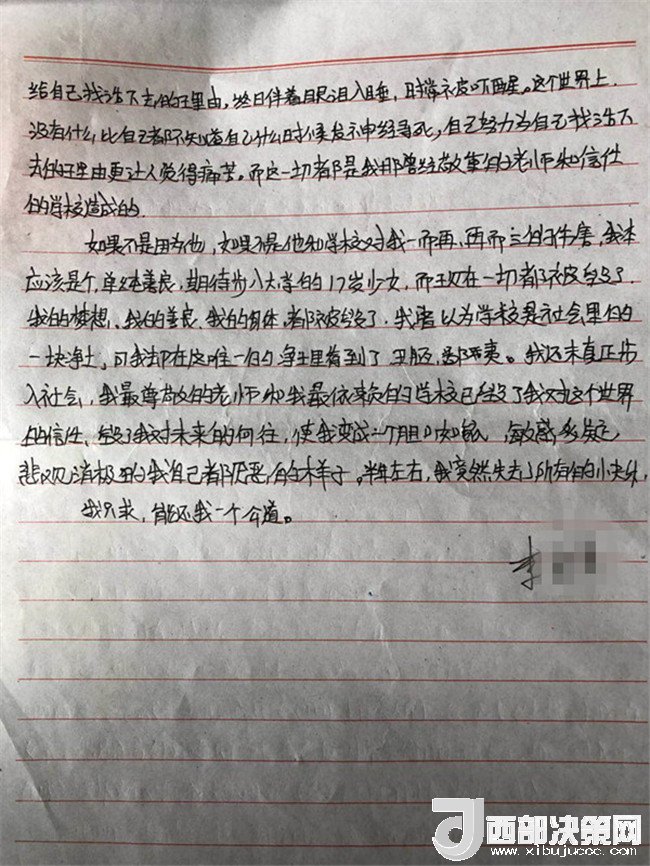 给自己找活下去的理由，终日伴着眼泪入睡，时常被吓醒。这个世界上
没有什么比自己都不知道自己什么时候发神经寻死，自己努力为自己找活下
去的理由更让人觉得痛苦。而这一切都是我那曾经敬重的老师和信任
的学校造成的
如果不是因为他，如果不是他和学校对我一而再，再而三的伤害，我本
应该是个单纯善良，期待步入大学的17岁少女，而现在一切都被毁了．
我的梦想、我的善良、我的身体，都被毁了，我以为学校是社会里的
一块净土，可我却在这唯一的净土里看到了丑陋，邪恶。我还未真正步
入社会，我最尊敬的老师和我最依赖的学校已经毁了我对这个世界
的信任、毁了我对未来的向往，使我变成一个胆小如鼠，敏感多疑
悲观消极的我自己都厌恶的样子。半年左右，我突然失去了所有的小快乐，
我只求，能还我一个公道。
李
西部决策网
www.xibujucoc.com